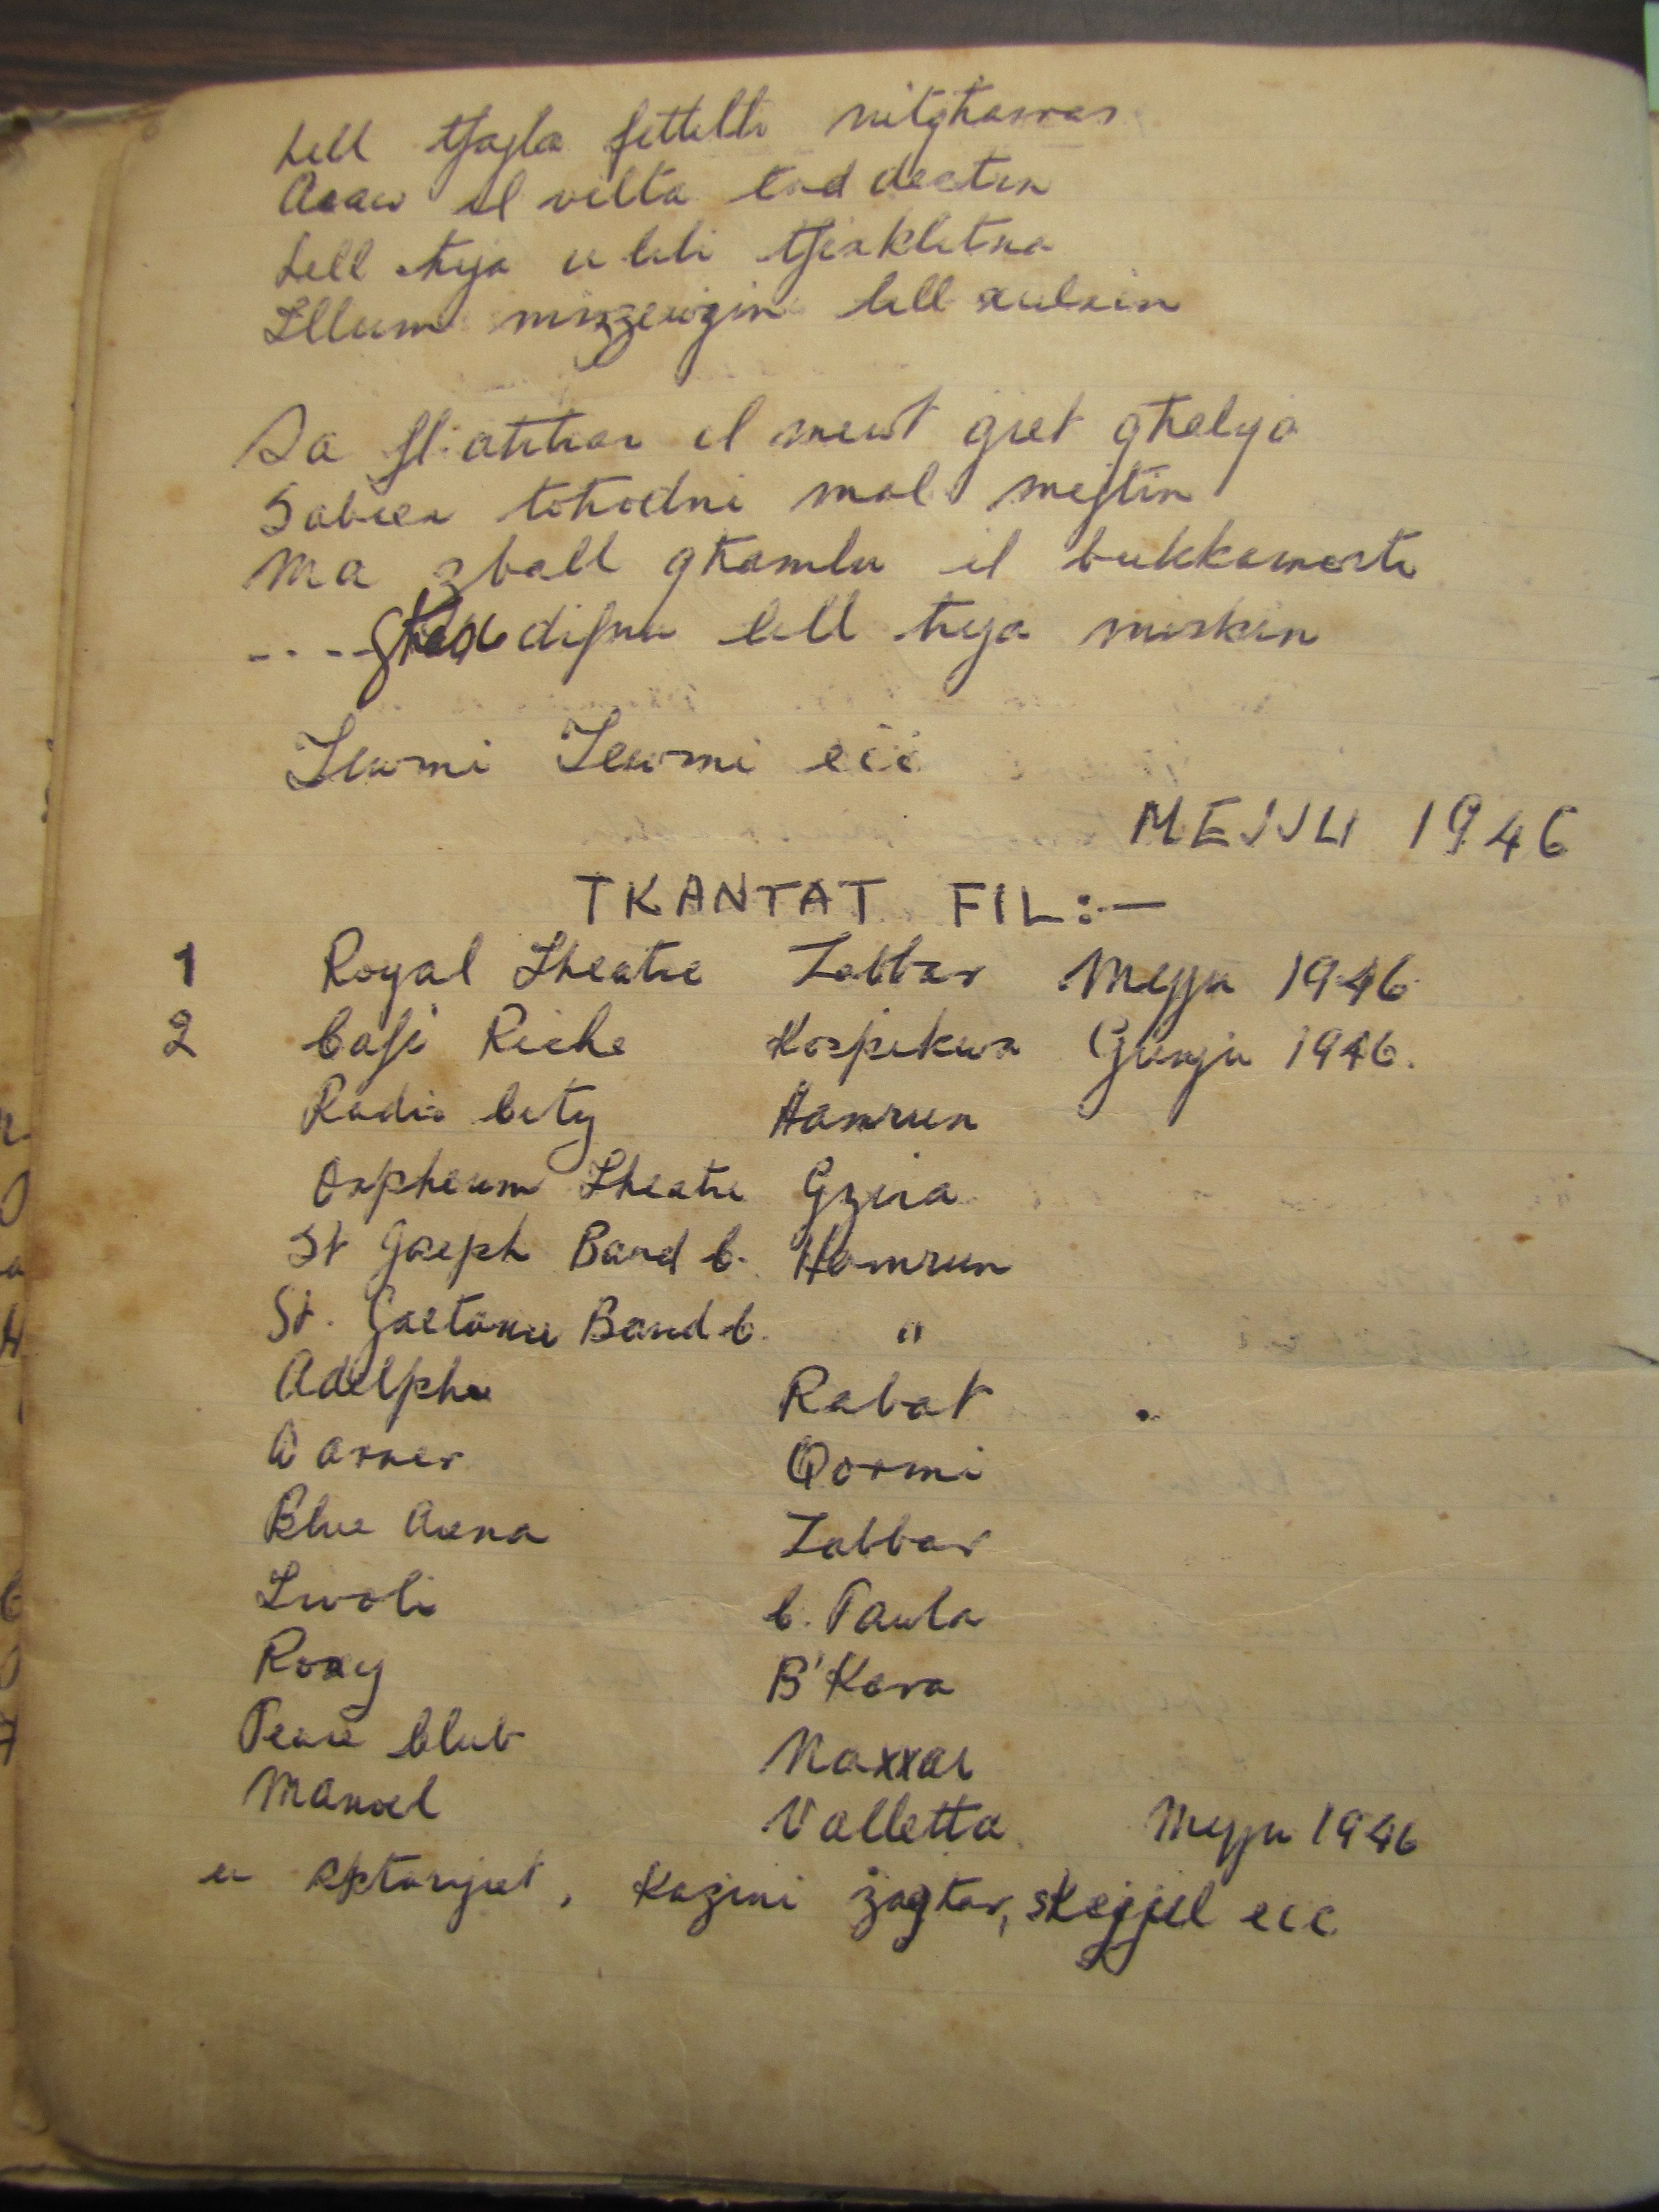 Lell tfajla fettilli nitgħawar
Araw il vilta tad destin
Lell ħija u lili tfixklitna
Illum miżżewgin lell xulxin
Sa fl-aħħar il mewt ġiet għalija
Sabiex toħodni mal mejtin
Ma zball għamlu il bukkamorti
....Għax difnu lell ħija miskin
Lewmi Lewmi eċċ
MEJJU 1946
TKANTAT FIL:—
1 Royal Theatre Zabbar Mejju 1946
2 Cafè Riche Kospikwa Ġunju 1946.
Radio City Hamrun
Orpheum Theatre Gzira
St Joseph Band C. Hamrun
St. Gaetanu Band C. "
Adelphi Rabat
Warner Qormi
Blue Arena Zabbar
Tivoli C. Paula
Roxy B'Kara
Peace Club Naxxar
Manoel Valletta Mejju 1946
u Każini żagħar, skejjel eċċ